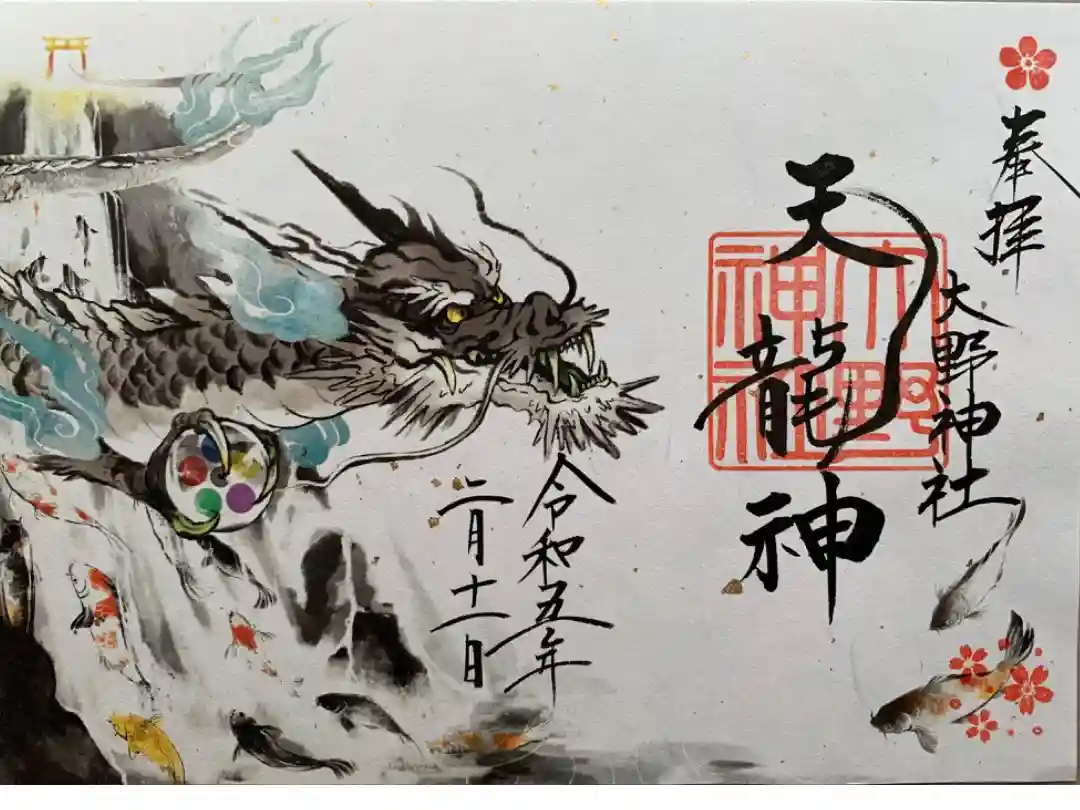 奉拝
大野神社
天龍神
大野
神社
令和五年
二月十一日